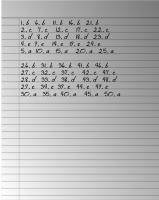 1. b 6. b 11. b 16. b 21. b
2. c 7. c 12. c 17. c 22. c
3. d 8. d 13. d 18. d 23. d
4. c 9. c 14. c 19. c 24. c
5. a 10. a 15. a 20. a 25. a
26. b 31. b 36. b 41. b 46. b
27. c 32. c 37. c 42. c 47. c
28. d 33. d 38. d 43. d 48. d
29. c 34. c 39. c 44. c 49. c
30. a 35. a 40. a 45. a 50. a